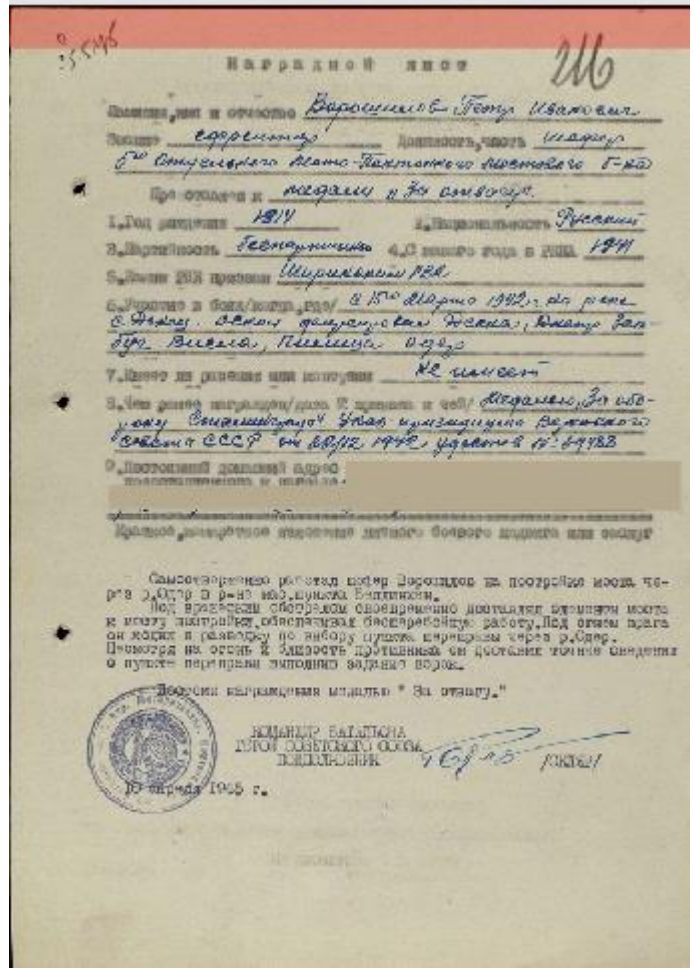 216
Наградной лист
Фамилия, имя и отчество Ворошилов Петр Иванович
Звание ефрейтор Должность, часть шофер
5го Отдельного Мото-Понтонного мостового б-на
Представлен к медали "За отвагу".
1. Год рождения 1914 2. Национальность Русский
3. Партийность беспартийный 4. С какого года в РККА 1941
5. Каким РВК призван РВК
6. Участие в боях/когда, где/ с 15го Марта 1942 г. на реке
С. Донец. Оскол Десна, Днепр Зап-
Буг Висла, Пилица Одер
7. Имеет ли ранения или контузии Не имеет
8. Чем ранее награжден/дата № приказа и чей/ Медалью, За обо-
рону Сталинграда Указ президиума Верховного
Совета СССР от 22/12 1942 удостов №
9. Постоянный домашний адрес
Краткое, конкретное изложение личного боевого подвига или заслуг
Самоотверженно работал шофер Ворошилов на постройке моста че-
рез р.Одер в р-не нас.пункта
Под вражеским обстрелом своевременно доставлял элементы моста
к месту постройки, обеспечивая бесперебойную работу. Под огнем врага
он ходил в разведку по выбору пункта переправы через р.Одер.
Несмотря на огонь и близость противника он доставил точные сведения
о пункте переправы выполнив задание
Достоин награждения медалью "За отвагу."
КОМАНДИР БАТАЛЬОНА
ГЕРОЙ СОВЕТСКОГО СОЮЗА
ПОДПОЛКОВНИК
10 апреля 1945 г.